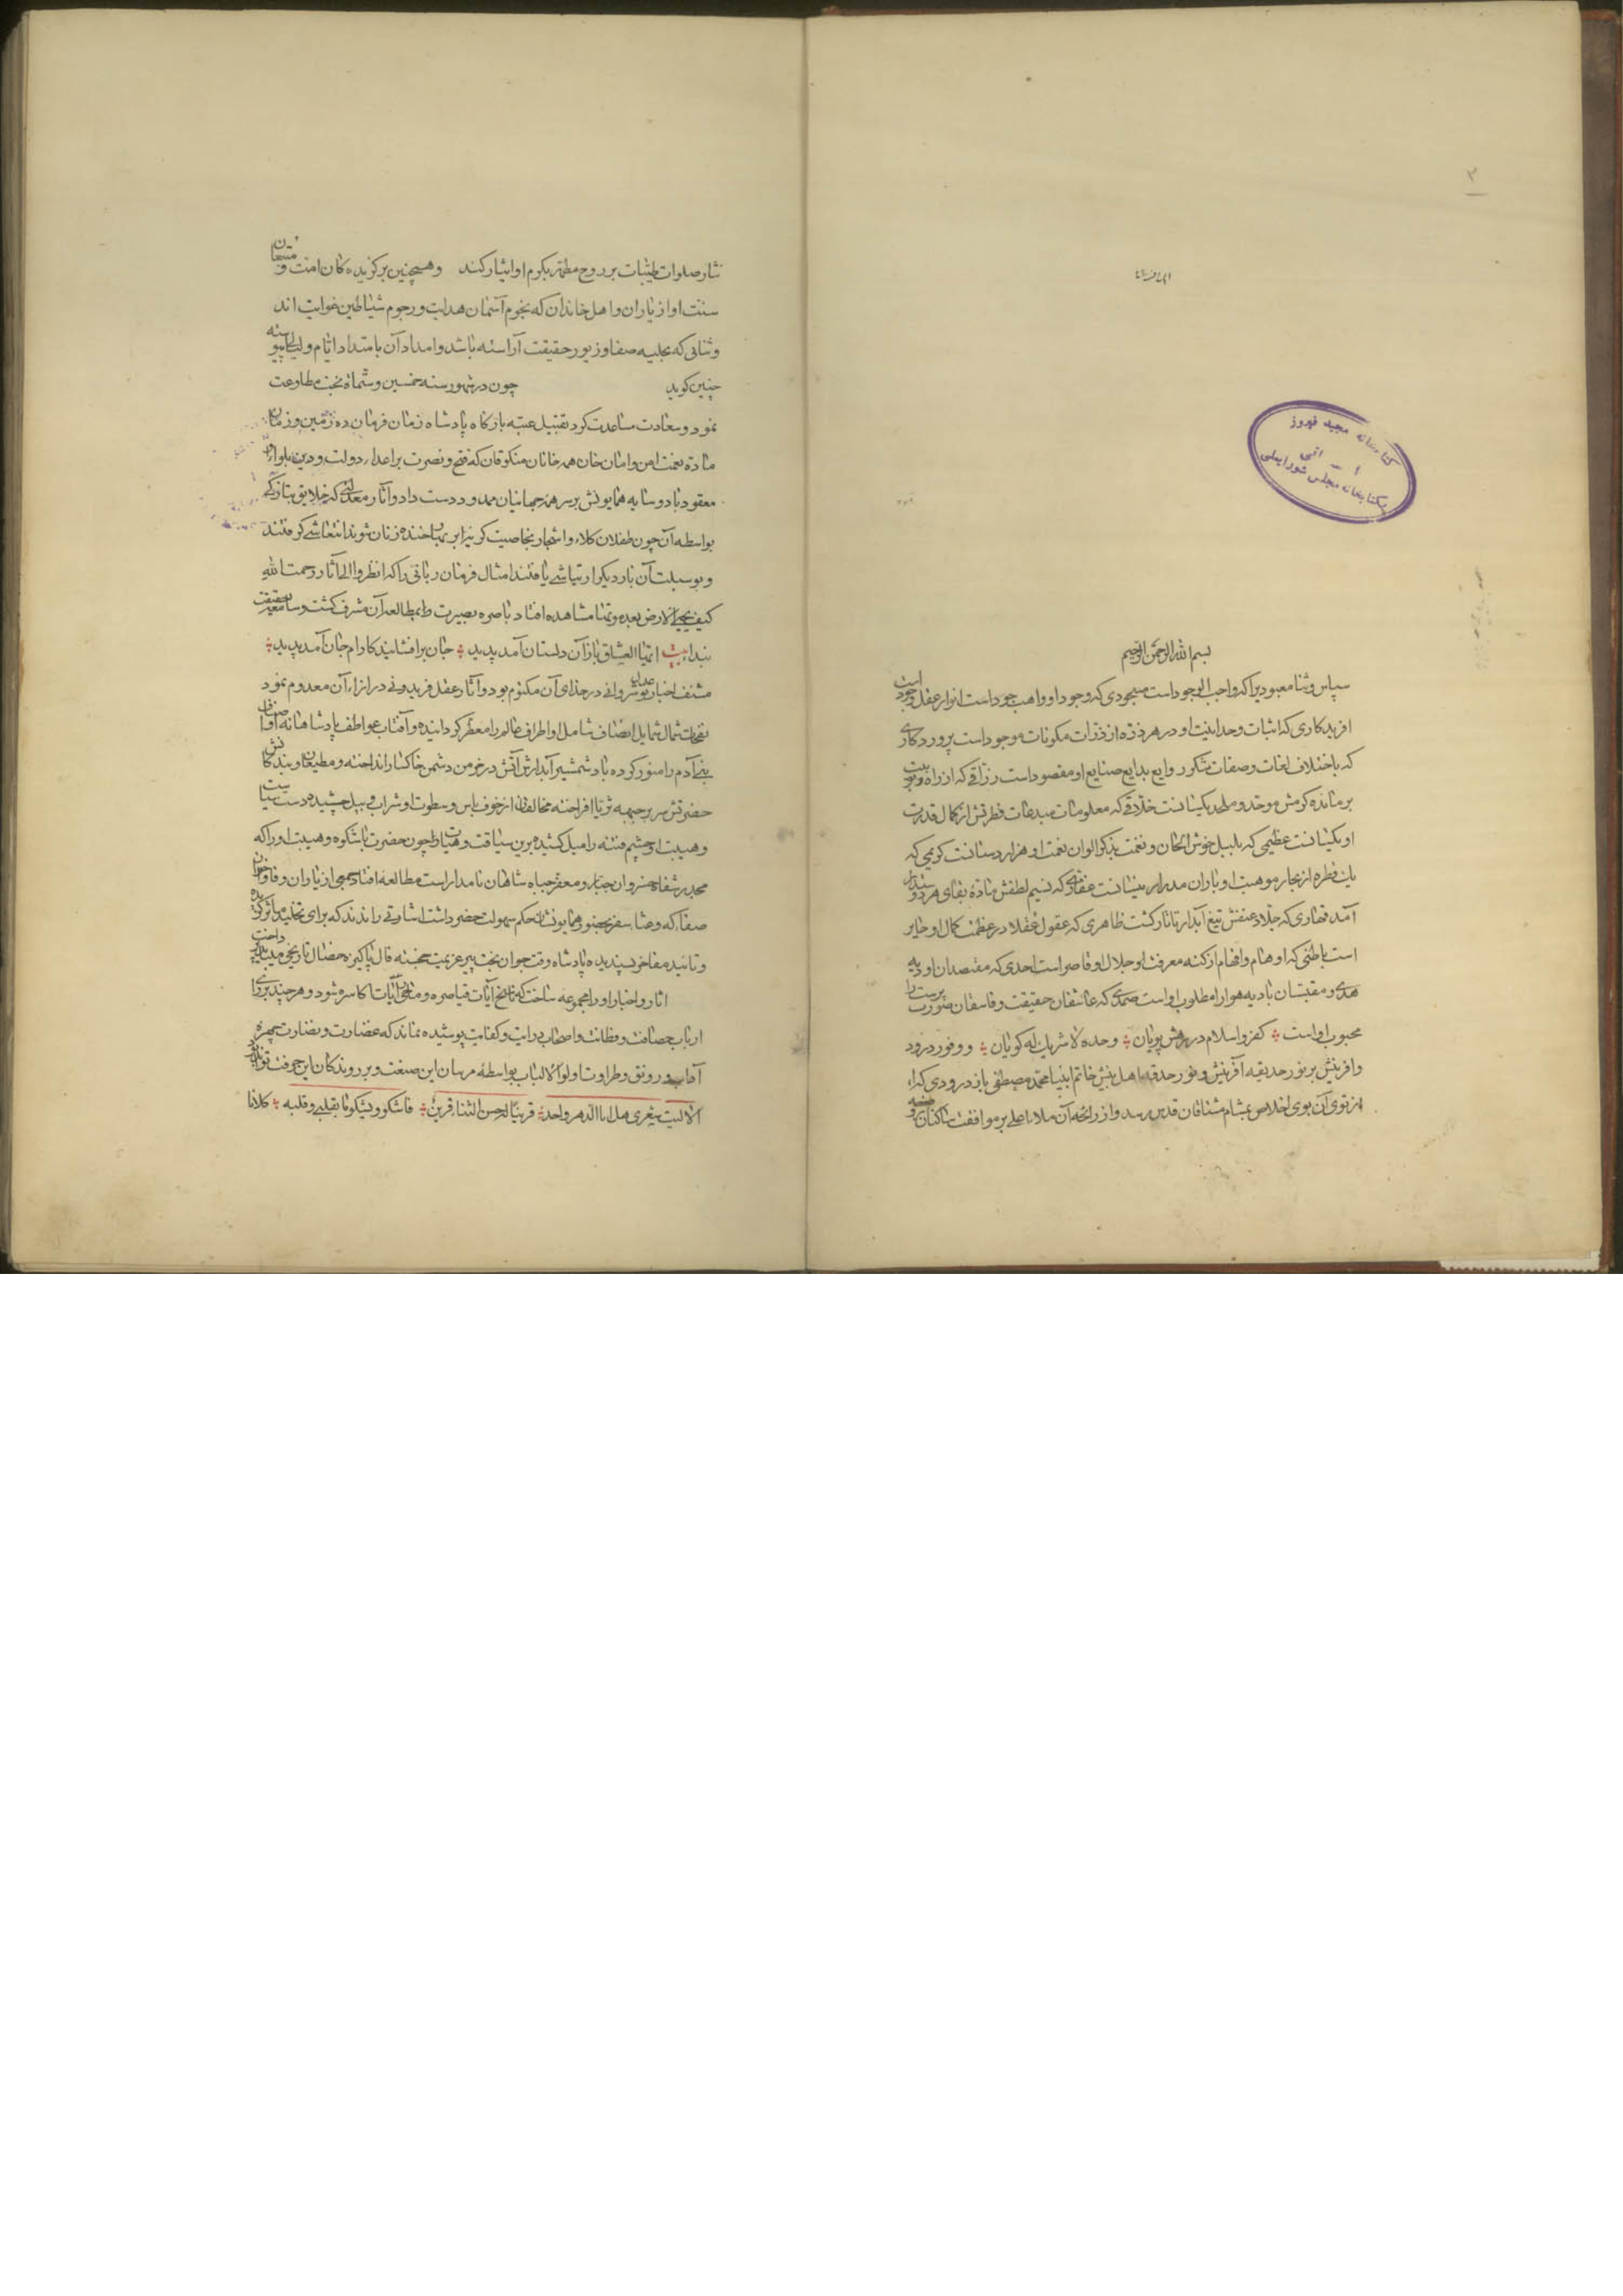 ۳
بسم الله الرحمن الرحیم
سپاس و ثنا معبودیرا که واجب الوجود است مسجودی که وجود او واهب جود است انوار عقل و جود است
افریدکاری که اثبات وحدانیت او در هر ذره از ذرات مکونات موجود است پروردکاری
که باختلاف لغات و صفات شکر روایع بدایع صنایع او مقصود است رزاقی که از راه ربوبیت
بر مائده کرمش موحد و ملحد یکسانست خلاقی که معلومات مبدعات فطرتش از کمال قدرت
او یکسانست عظیمی که بلبل خوش الحان و نغمت بذکر الوان نعمت او هزار دستانست کریمی که
یک قطره از بحار موهبت او باران مدرار نیسانست که نسیم لطفش مادهٔ بقای هر دوستدار
آمد قهاری که جلاد عنفش تیغ آبدار تاتار کشت ظاهری که عقول عقلا در عظمت کمال او حایر
است باطنی که اوهام و افهام از کنه معرفت او جلال او قاصر است احدی که مقتصدان اودیه
هدی و مقبسان بادیه هوا را مطلوب او است صمدی که عاشقان حقیقت و فاسقان صورت پرست را
محبوب او است کفر و اسلام در رهش پویان وحده لا شریک له کویان و وفور درود
و افرینش بر نور حدیقه آفرینش و نور حدقه اهل بینش خاتم انبیا محمد مصطفی باز درودی که از
از توی آن بوی اخلاص بمشام مشتاقان قدس رسد و از رائحه آن ملا اعلی بر موافقت ساکنان
نثار صلوات طیبات بر روح مطهر مکرم او ایثار کنند و همچنین بر کزیده کان امت و متبعان
سنت او از یاران و اهل خاندان که نجوم آسمان هدایت و رجوم شیاطین غوایت اند
و ثنایی که بحلیه صفا و زیور حقیقت آراسته باشد و امداد آن بامتداد ایام و لیالی پیوسته
چنین کوید چون در شهور سنه خمسین و ستمائه بخت مطاوعت
نمود و سعادت مساعدت کرد تقبیل عتبه بارکاه پادشاه زمان فرمان ده زمین و زمان
مادهٔ نعمت امن و امان خان همه خانان منکو قاان که فتح و نصرت بر اعداء دولت و دین بلواء او
معقود باد و سایه همایونش بر سر همه جهانیان ممدود دست داد و آثار معدلتی که خلایق بتازکی
بواسطه آن چون طفلان کلاء و اشجار بخاصیت کریۀ ابر بهاران خنده زنان شوند انتعاشی کرفتند
و بوسیلت آن بار دیکر ارتیاشی یافتند امتثال فرمان ربانی را که انظروا الی آثار رحمت الله
کیف یحیی الارض بعد موتها مشاهده افتاد باصره بصیرت بمطالعه آن مشرف کشت و سامعه حقیقت
بنداء بیت ایها العشاق باز آن دلستان آمد پدید جان برافشانید کارام جان آمد پدید
مشنف اخبار عدل نوشروانی در حذای آن مکتوم بود و آثار عقل فریدونی در ازاء آن معدوم نمود
نفحات شمال شمایل انصاف شامل او اطراف عالم را معطر کردانیده و آفتاب عواطف پادشاهانه او اصناف
بنی آدم را منور کرده باد شمشیر آبدارش آتش در خرمن دشمن خاکسار انداخته و مطیعان و بندکانش
حضرتش سریر بجبهه ثریا افراخته مخالفان از خوف باس و سطوت او شراب وبیل چشیده دست سیاست
و هیبت او چشم فتنه را میل کشیده برین سیاقت و هیات چون حضرت باشکوه و هیبت او را که
محل بر شفاه خسروان جبار و معفر جباه شاهان نامدار است مطالعه افتاد جمعی از یاران وفا و اخوان
صفا که وعثاء سفر بحضور همایونشان حکم سهولت حضر داشت اشارتی راندند که برای تخلید مآثر کزیده
و تائید مفاخر پسندیده پادشاه وقت جوان بخت پیر عزیمت خجسته فال پاکیزه خصال تاریخی میباید پرداخت
آثار و اخبار او را مجموعه ساخت که ناسخ آیات قیاصره و ماحی آیات اکاسره شود و هر چند بر رای
ارباب حصافت و فطانت و اصحاب درایت و کفایت پوشیده نماند که غضارت و نضارت چهره
آداب و رونق و طراوت اولو الالباب بواسطه مربیان این صنعت و پروردکان این حرفت تواند بود
الا لیت شعری هل ارا الدهر واحدا قرینا له حسن الثناء قرین فاشکو و یشکو ما بقلبی و قلبه کلانا